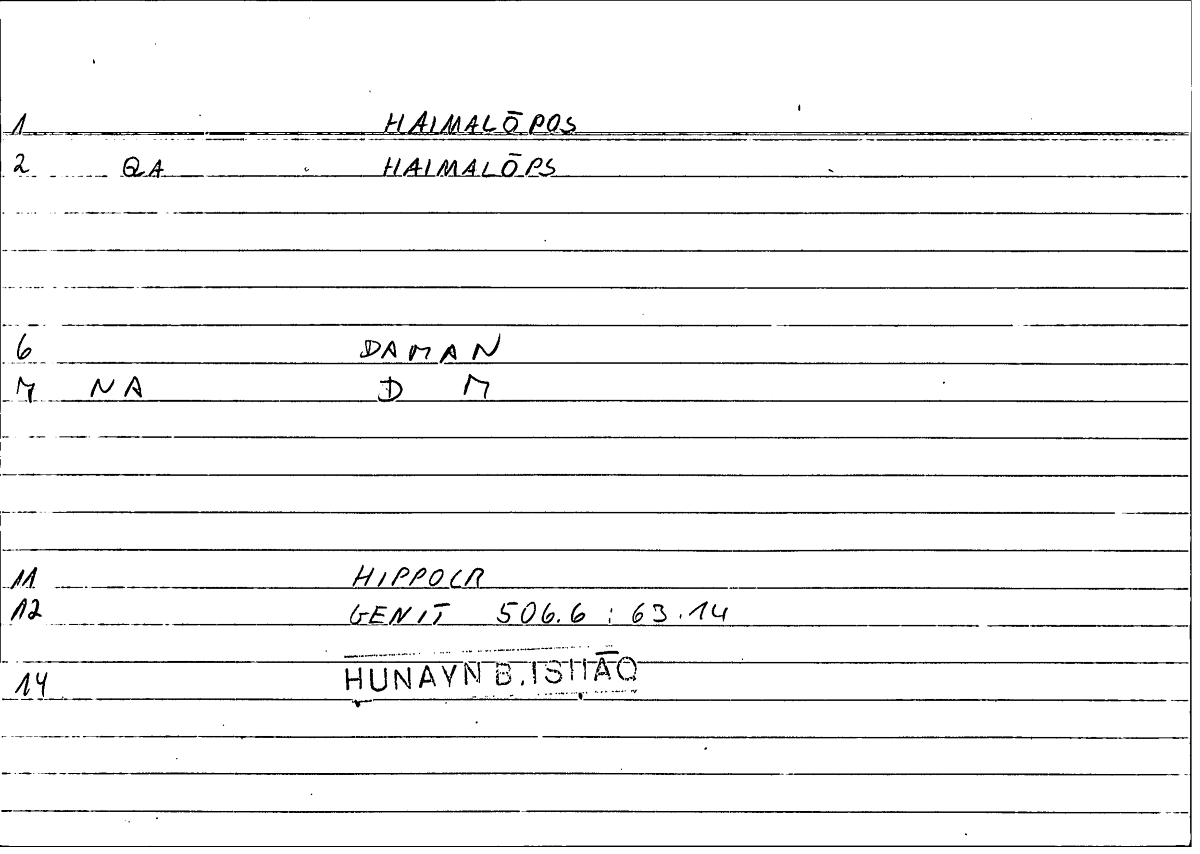 1 HAIMALŌPOS
2 QA HAIMALŌPS
6 DAMAN
7 NA D M
11 HIPPOCR
12 GENIT 506.6 : 63.14
14 HUNAYN B. ISHĀQ